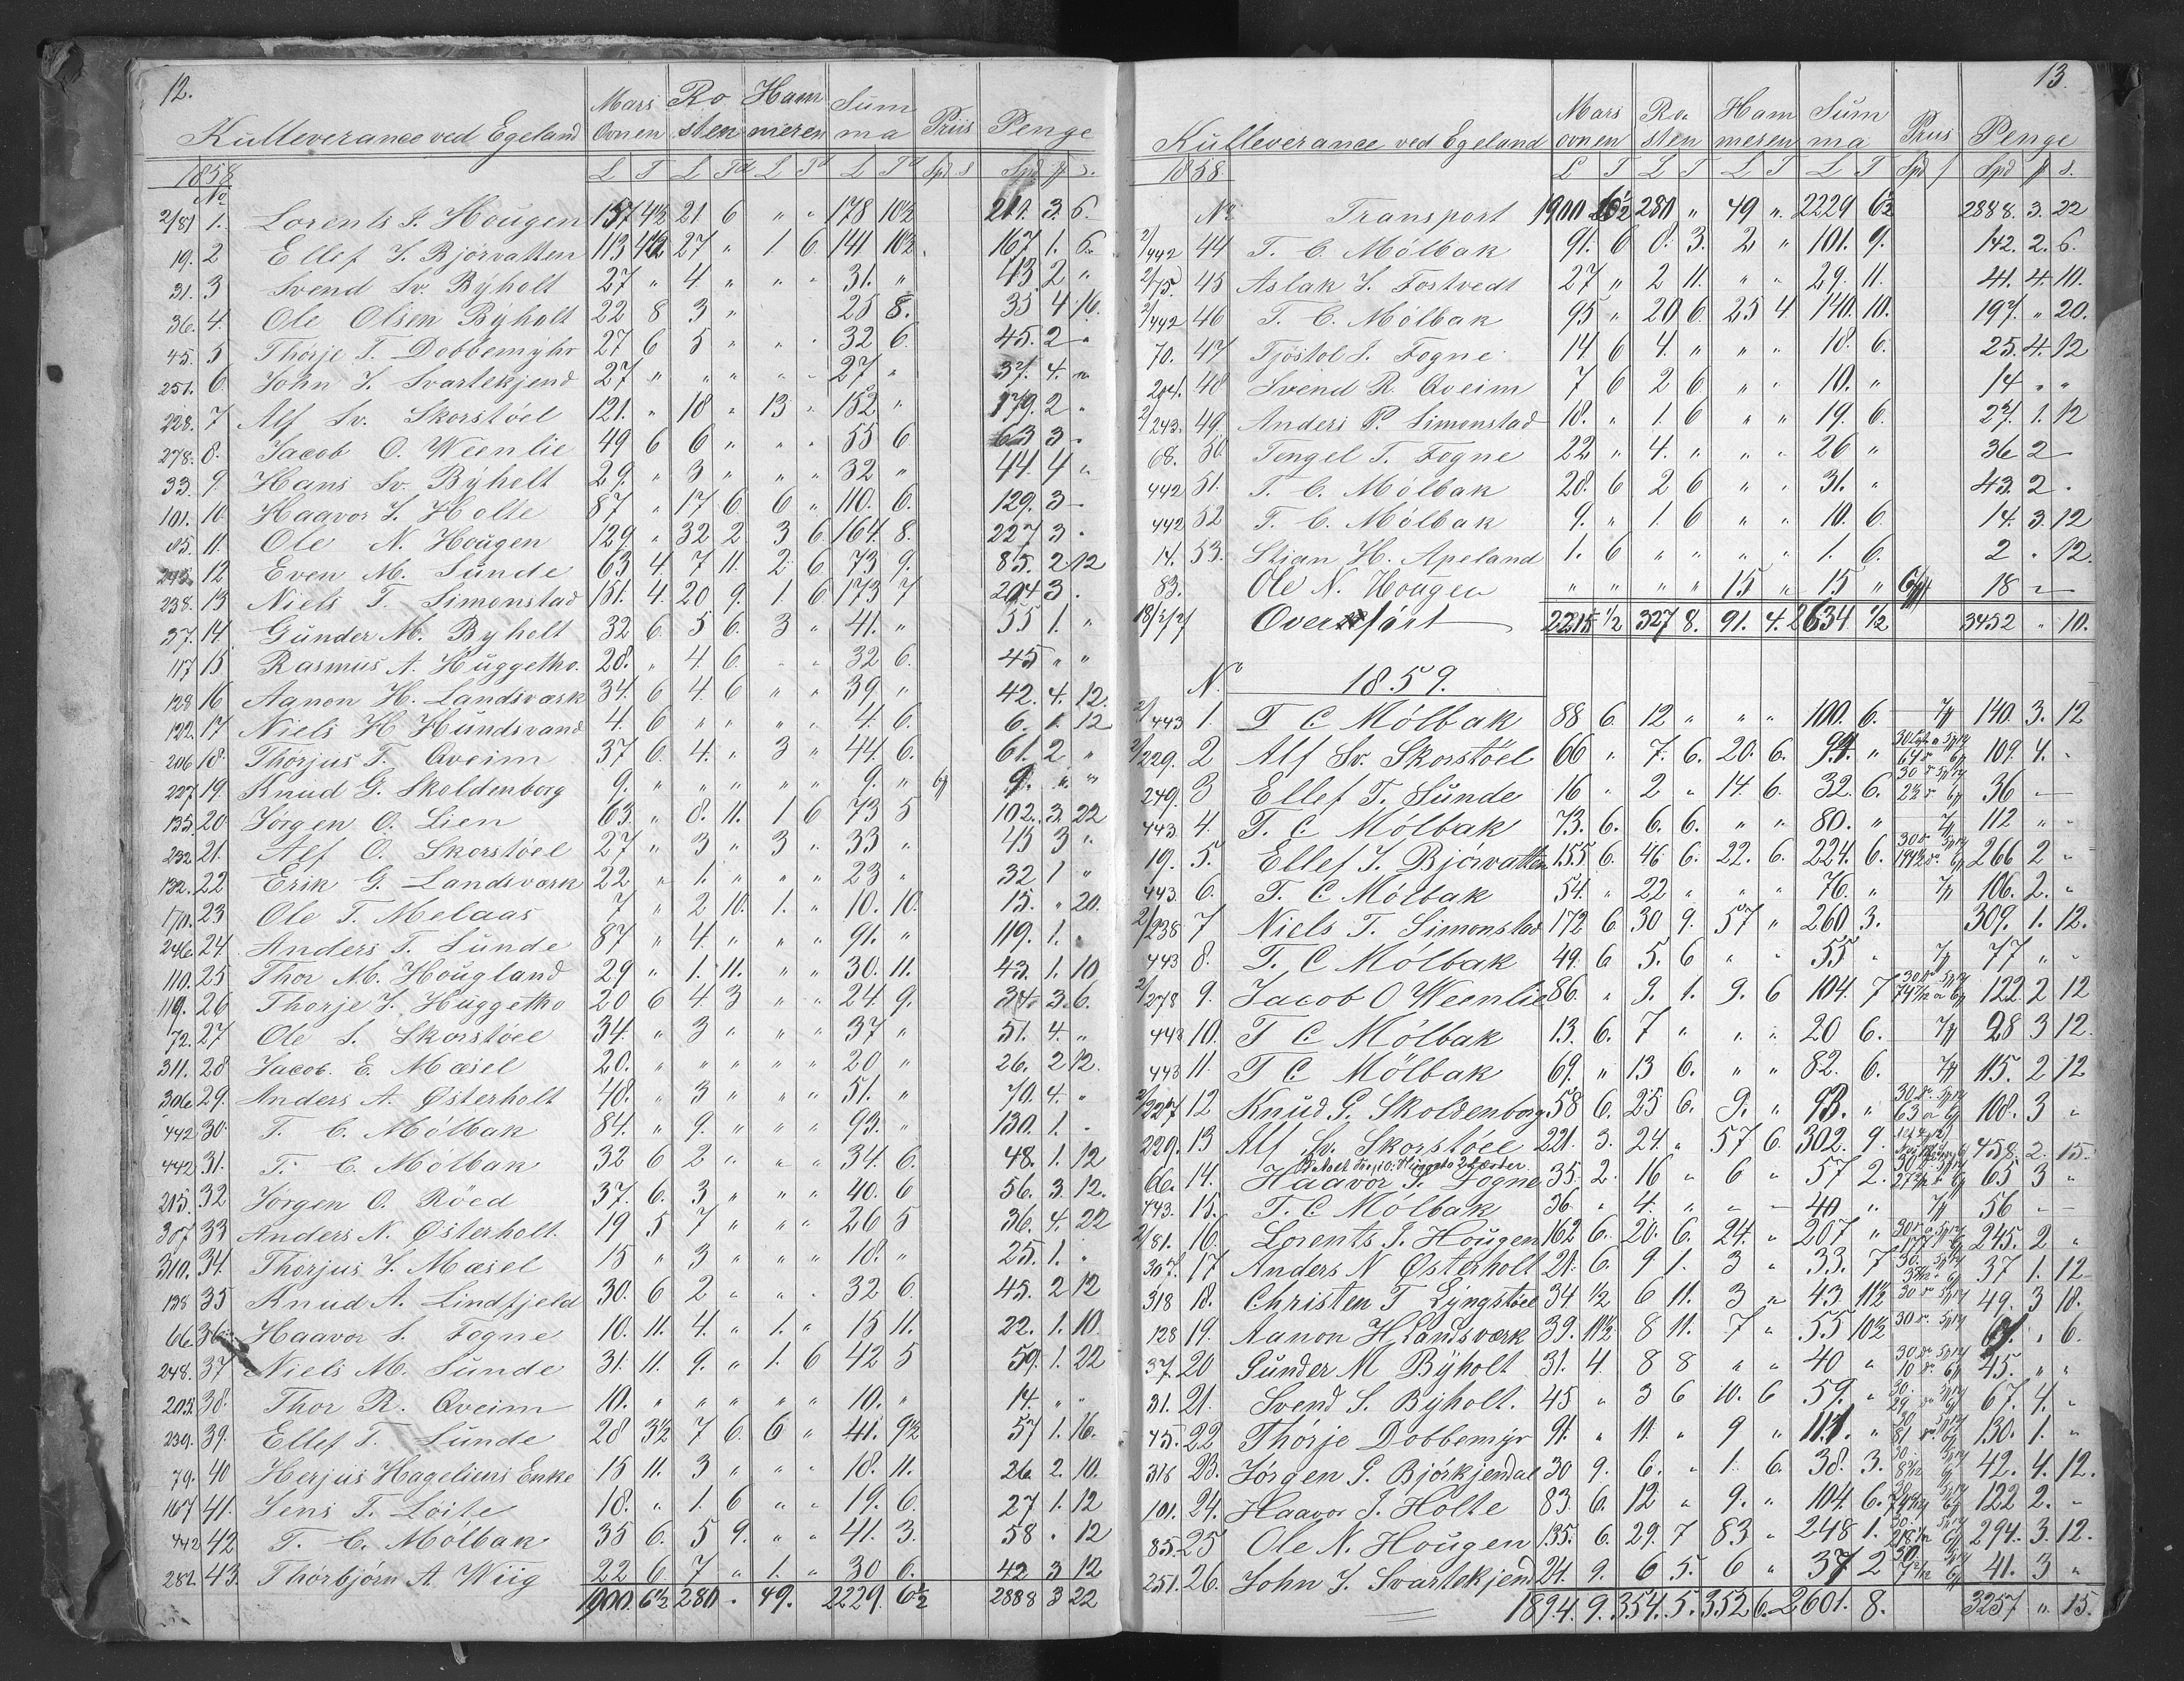 12.
Kulleverance ved Egeland Mars Ovnen Rosten Hammeren Summa Priis Penge
1858 L T L Td L Td L Td Spd s Spd ß s.
No
2/81 1. Lorents J. Hougen 157 4½ 21. 6 " " 178 10½ 210. 3. 6.
19. 2 Ellef J. Bjørvatten 113 4½ 27 " 1. 6 141 10½ 167. 1. 6.
31. 3 Svend Sv. Byholt 27 " 4 " " " 31. " 43. 2 "
36. 4. Ole Olsen Byholt 22 8 3 " 25 8. 35 4 16.
45. 5 Thorje T. Dobbemyhr 27 6 5 " " " 32 6 45. 2 "
251. 6. John J. Svartekjend 27 " " " " " 27 " 37. 4. "
228. 7 Alf Sv. Skorstøel 121. " 18 " 13 " 152 " 179. 2 "
278. 8. Jacob O. Weenlie 49 6 6 " " " 55 6 63 3 "
33. 9. Hans Sv. Byholt 29. " 3 " " " 32 " 44. 4 "
101. 10. Haavor J. Holte 87 " 17 6 6 " 110. 6. 129. 3 "
85. 11. Ole N. Hougen 129 " 32 2. 3 6 164. 8. 227 3 "
245. 12 Even M. Sunde 63 4. 7 11. 2 6 73. 9. 85. 2 12
238. 13 Niels T. Simonstad 151. 4. 20 9. 1. 6 173 7 204 3 .
37. 14. Gunder M. Byholt 32 6. 5 6. 3 " 41. " 55 1. "
117 15 Rasmus A. Huggetho. 28. " 4. 6. " " 32 6. 45 " "
128 16 Aanon H. Landsværk 34. 6 4. 6 " " 39. " 42. 4. 12.
122. 17 Niels H Hundsvand 4. 6 " " " " 4. 6. 6. 1. 12
206 18. Thorjus T. Qveim 37 6. 4. " 3 " 44. 6. 61. 2 "
227. 19. Knud G. Skoldenborg 9. " " " " " 9. " 6ß 9. " "
135. 20. Jørgen O. Lien 63. " 8. 11. 1 6 73 5 102. 3 22
232 21. Alf O. Skorstøel 27 " 3 " 3 " 33 " 45 3 "
132. 22 Erik G. Landsværk 22 " 1. " " " 23 " 32 1 "
170. 23 Ole T. Melaas 7 " 2 10. 1. " 10. 10. 15. " 20.
246. 24. Anders T. Sunde 87 " 4. " " " 91. " 119. 1. "
110. 25 Thor M. Hougland 29 " 1. 11. " " 30. 11. 43. 1. 10
119. 26 Thorje J. Huggetho 20 6 4 3 " " 24. 9. 34. 3. 6.
72. 27 Ole S. Skorstøel 34. " 3 " " " 37 " 51. 4. "
311. 28 Jacob. E. Mæsel 20. " " " " " 20 " 26. 2 12.
306 29. Anders A. Østerholt 48. " 3 " " " 51. " 70. 4. "
442 30. T. C. Mólbak 84. " 9. " " " 93. " 130. 1. "
442 31. T. C. Mólbak 32 6 2 " " " 34. 6. 48. 1. 12
215. 32 Jørgen O. Röed 37. 6. 3 " " " 40. 6 56. 3. 12.
307 33 Anders N. Østerholt. 19 5 7 " " " 26 5 36. 4. 22
310. 34. Thorjus J. Mæsel 15 " 3 " " " 18. " 25. 1. "
138 35 Knud A. Lindfjeld 30. 6 2 " " " 32 6. 45. 2 12
66. 36. Haavor S. Fogne 10. 11. 4. " 1. " 15 11. 22. 1. 10.
248. 37 Niels M. Sunde 31. 11. 9. " 1. 6 42 5 59. 1. 22
205. 38. Thor R. Qveim 10. " " " " " 10. " 14. " "
239. 39. Ellef T. Sunde 28 3½ 7 6. 6 " 41. 9½ 57 1. 16.
79. 40 Herjus Hageliens Enke 15 11. 3 " " " 18. 11. 26 2. 10.
167 41. Jens T. Loite 18. " 1. 6 " " 19. 6. 27 1. 12
442 42 T. C. Mólbak 35 6. 5 9. " " 41. 3. 58 " 12
282. 43. Thorbjörn A. Wiig 22 6. 7 " 1. " 30 6. 42 3 12
1900. 6½ 280 " 49. 2229. 6½ 2888 3 22
13.
Kulleverance ved Egeland Mars ovnen Rosten Hammeren Summa Priis Penge
1858 L T L T L T L T Spd ß Spd ß s.
No Transport 1900 6½ 280 " 49 " 2229 6½ 2888. 3. 22
2/442 44 T. C. Mólbak 91. 6 8. 3. 2 " 101. 9. 142. 2. 6.
2/75. 45 Aslak J. Fostvedt 27 " 2 11. " " 29. 11. 41. 4. 10.
2/442 46 T. C. Mólbak 95 " 20 6. 25 4 140. 10. 197. " 20.
70. 47 Tjöstol J. Fogne 14 6 4. " " " 18. 6. 25. 4. 12
204. 48 Svend R Qveim 7 6 2 6 " " 10. " 14 " "
2/243. 49. Anders P. Simonstad 18. " 1. 6 " " 19. 6. 27. 1. 12
68. 50. Tengel T. Fogne 22 " 4. " " " 26 " 36 2 "
442 51. T. C. Mólbak 28. 6 2 6 " " 31. " 43. 2 .
442 52 T. C. Mólbak 9. " 1. 6 " " 10. 6 14. 3. 12
14. 53. Stian H. Apeland 1. 6 " " " " 1. 6. 2 " 12.
83. Ole N. Hougen " " " " 15 " 15 " 6ß 18 "
Overført 2215 ½ 327 8. 91. 4. 2634 ½ 3452 " 10.
No 1859.
2/443 1. T C Mólbak 88 6. 12 " " " 100. 6. 7ß 140. 3. 12
2/229. 2 Alf Sv. Skorstöel 66 " 7. 6. 20. 6. 94. " 109. 4. "
249. 3 Ellef T. Sunde 16 " 2 " 14. 6. 32. 6. 36 "
443. 4. T. C. Mólbak 73. 6. 6. 6. " " 80. " 7ß 112 " "
19. 5. Ellef J. Bjørvatten 155 6. 46 6. 22. 6. 224. 6. 266 2 "
443 6. T. C Mólbak 54. " 22 " " " 76. " 7ß 106. 2. "
2/238 7 Niels T. Simonstad 172 6 30 9. 57 " 260 3. 309. 1. 12.
443 8. T. C Mólbak 49. 6 5. 6 " " 55 " 7ß 77 " "
2/278 9. Jacob O Weenlie 86. " 9. 1. 9. 6 104. 7 122. 2 12
443 10. T C Mólbak 13. 6. 7 " " " 20 6. 7ß 28 3 12.
443 11. T C Mólbak 69. " 13 6. " " 82. 6. 7ß 115. 2 12
2/227 12 Knud G. Skoldenborg 58 6. 25 6. 9. " 93. " 108. 3 "
229. 13 Alf Sv. Skorstöel 221. 3. 24. " 57 6. 302. 9. 458. 2. 15.
66. 14. Haavor S. Fogne 35. 2. 16 " 6 " 57 2. 65 3 "
443. 15. T. C Mólbak 36 " 4. " " " 40 " 7ß 56 "
2/81. 16. Lorents J. Hougen 162 6. 20. 6. 24. " 207 " 245. 2 "
307. 17 Anders N Østerholt 21. 6. 9 1. 3 " 33. 7 37 1. 12
318 18. Christen T Lyngstöel 34 ½ 6 11. 3 " 43 11½ 49. 3 18.
128 19. Aanon H Landsværk 39. 11½ 8 11. 7 " 55 10½ 61. " 6.
37. 20 Gunder M Byholt 31. 4. 8 8 " " 40 " 45. " "
31. 21. Svend S. Byholt. 45 " 3 6 10. 6 59. " 67. 4. "
45. 22 Thorje Dobbemyr 91. " 11. " 9 " 111. " 130. 1. "
316 23. Jörgen G. Bjørkjendal 30 9. 6. " 1. 6. 38. 3. 42. 4. 12.
101. 24. Haavor J. Holte 83. 6. 12 " 9. " 104. 6. 122 2. "
85. 25 Ole N. Hougen 135. 6. 29. 7 83 " 248 1. 294. 3. 12.
251. 26. John J. Svartekjend 24. 9. 6 5. 6 " 37 2 41. 3 "
1894. 9. 354. 5. 352 6. 2601. 8. 3257 " 15.